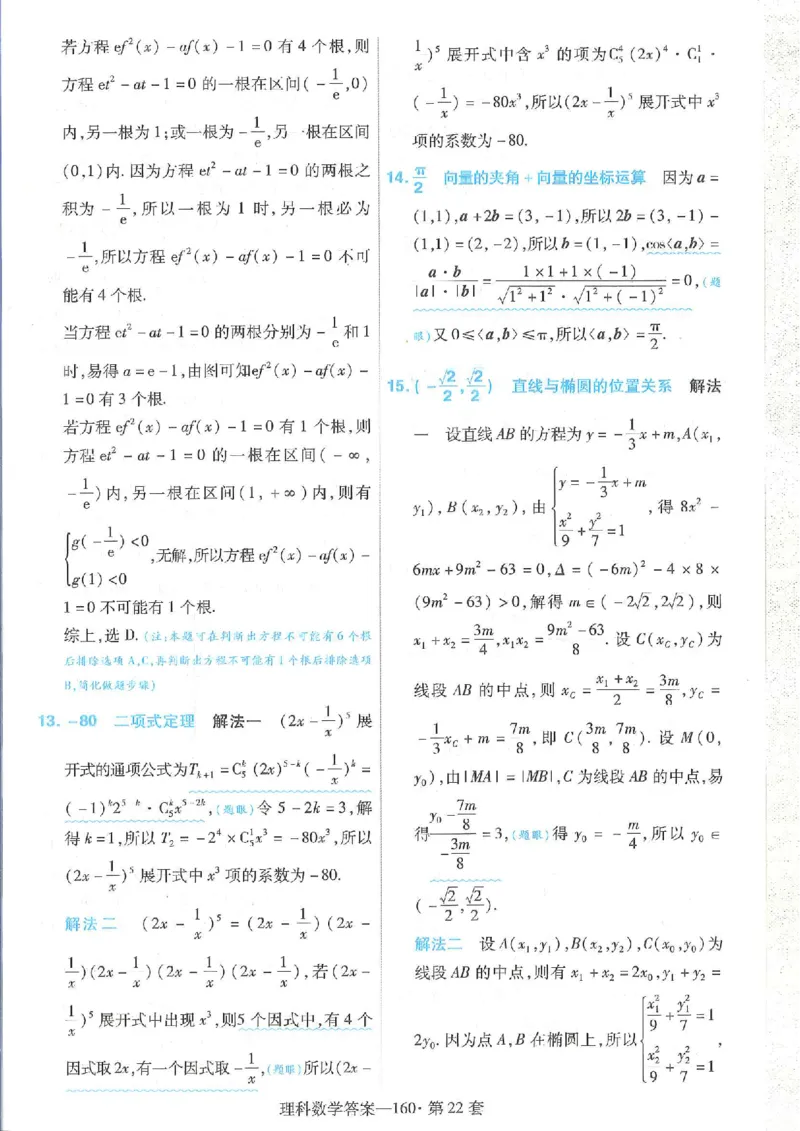 若方程 ef²(x) - af(x) - 1 = 0 有 4 个根,则
方程 et² - at - 1 = 0 的一根在区间( - 1/e ,0)
内,另一根为 1;或一根为 - 1/e ,另一根在区间
(0,1)内. 因为方程 et² - at - 1 = 0 的两根之
积为 - 1/e ,所以一根为 1 时,另一根必为
- 1/e ,所以方程 ef²(x) - af(x) - 1 = 0 不可
能有 4 个根.
当方程 et² - at - 1 = 0 的两根分别为 - 1/e 和 1
时,易得 a = e - 1,由图可知 ef²(x) - af(x) -
1 = 0 有 3 个根.
若方程 ef²(x) - af(x) - 1 = 0 有 1 个根,则
方程 et² - at - 1 = 0 的一根在区间( - ∞ ,
- 1/e )内,另一根在区间(1, + ∞ )内,则有
{ g( - 1/e ) < 0
g(1) < 0 ,无解,所以方程 ef²(x) - af(x) -
1 = 0 不可能有 1 个根.
综上,选 D. (注:本题可在判断出方程不可能有 6 个根
后排除选项 A,C,再判断出方程不可能有 1 个根后排除选项
B,简化做题步骤)
13. -80 二项式定理 解法一 (2x - 1/x )⁵ 展
开式的通项公式为 Tₖ₊₁ = C₅ᵏ (2x)⁵⁻ᵏ( - 1/x )ᵏ =
( - 1)ᵏ2⁵⁻ᵏ · C₅ᵏx⁵⁻²ᵏ,(题眼)令 5 - 2k = 3,解
得 k = 1,所以 T₂ = - 2⁴ × C₅¹x³ = - 80x³,所以
(2x - 1/x )⁵ 展开式中 x³ 项的系数为 - 80.
解法二 (2x - 1/x )⁵ = (2x - 1/x )(2x -
1/x )(2x - 1/x )(2x - 1/x )(2x - 1/x ),若(2x -
1/x )⁵ 展开式中出现 x³,则 5 个因式中,有 4 个
因式取 2x,有一个因式取 - 1/x ,(题眼)所以(2x -
1/x )⁵ 展开式中含 x³ 的项为 C₅⁴ (2x)⁴ · C₁¹ ·
( - 1/x ) = - 80x³,所以(2x - 1/x )⁵ 展开式中 x³
项的系数为 - 80.
14. π/2 向量的夹角 + 向量的坐标运算 因为 a =
(1,1),a + 2b = (3, - 1),所以 2b = (3, - 1) -
(1,1) = (2, - 2),所以 b = (1, - 1),cos⟨a,b⟩ =
a·b / |a|·|b| = 1×1 + 1×( - 1) / √(1² + 1²) · √(1² + ( - 1)²) = 0,(题
眼)又 0 ≤ ⟨a,b⟩ ≤ π,所以⟨a,b⟩ = π/2 .
15. ( - √2/2 , √2/2 ) 直线与椭圆的位置关系 解法
一 设直线 AB 的方程为 y = - 1/3 x + m,A(x₁,
y₁),B(x₂,y₂),由 { y = - 1/3 x + m
x²/9 + y²/7 = 1 ,得 8x² -
6mx + 9m² - 63 = 0,Δ = ( - 6m)² - 4 × 8 ×
(9m² - 63) > 0,解得 m ∈ ( - 2√2,2√2),则
x₁ + x₂ = 3m/4 ,x₁x₂ = (9m² - 63)/8 . 设 C(x_C,y_C)为
线段 AB 的中点,则 x_C = (x₁ + x₂)/2 = 3m/8 ,y_C =
- 1/3 x_C + m = 7m/8 ,即 C( 3m/8 , 7m/8 ). 设 M(0,
y₀),由|MA| = |MB|,C 为线段 AB 的中点,易
得 (y₀ - 7m/8) / ( - 3m/8) = 3,(题眼)得 y₀ = - m/4 ,所以 y₀ ∈
( - √2/2 , √2/2 ).
解法二 设 A(x₁,y₁),B(x₂,y₂),C(x₀,y₀)为
线段 AB 的中点,则有 x₁ + x₂ = 2x₀,y₁ + y₂ =
2y₀. 因为点 A,B 在椭圆上,所以 { x₁²/9 + y₁²/7 = 1
x₂²/9 + y₂²/7 = 1 ,
理科数学答案—160·第 22 套